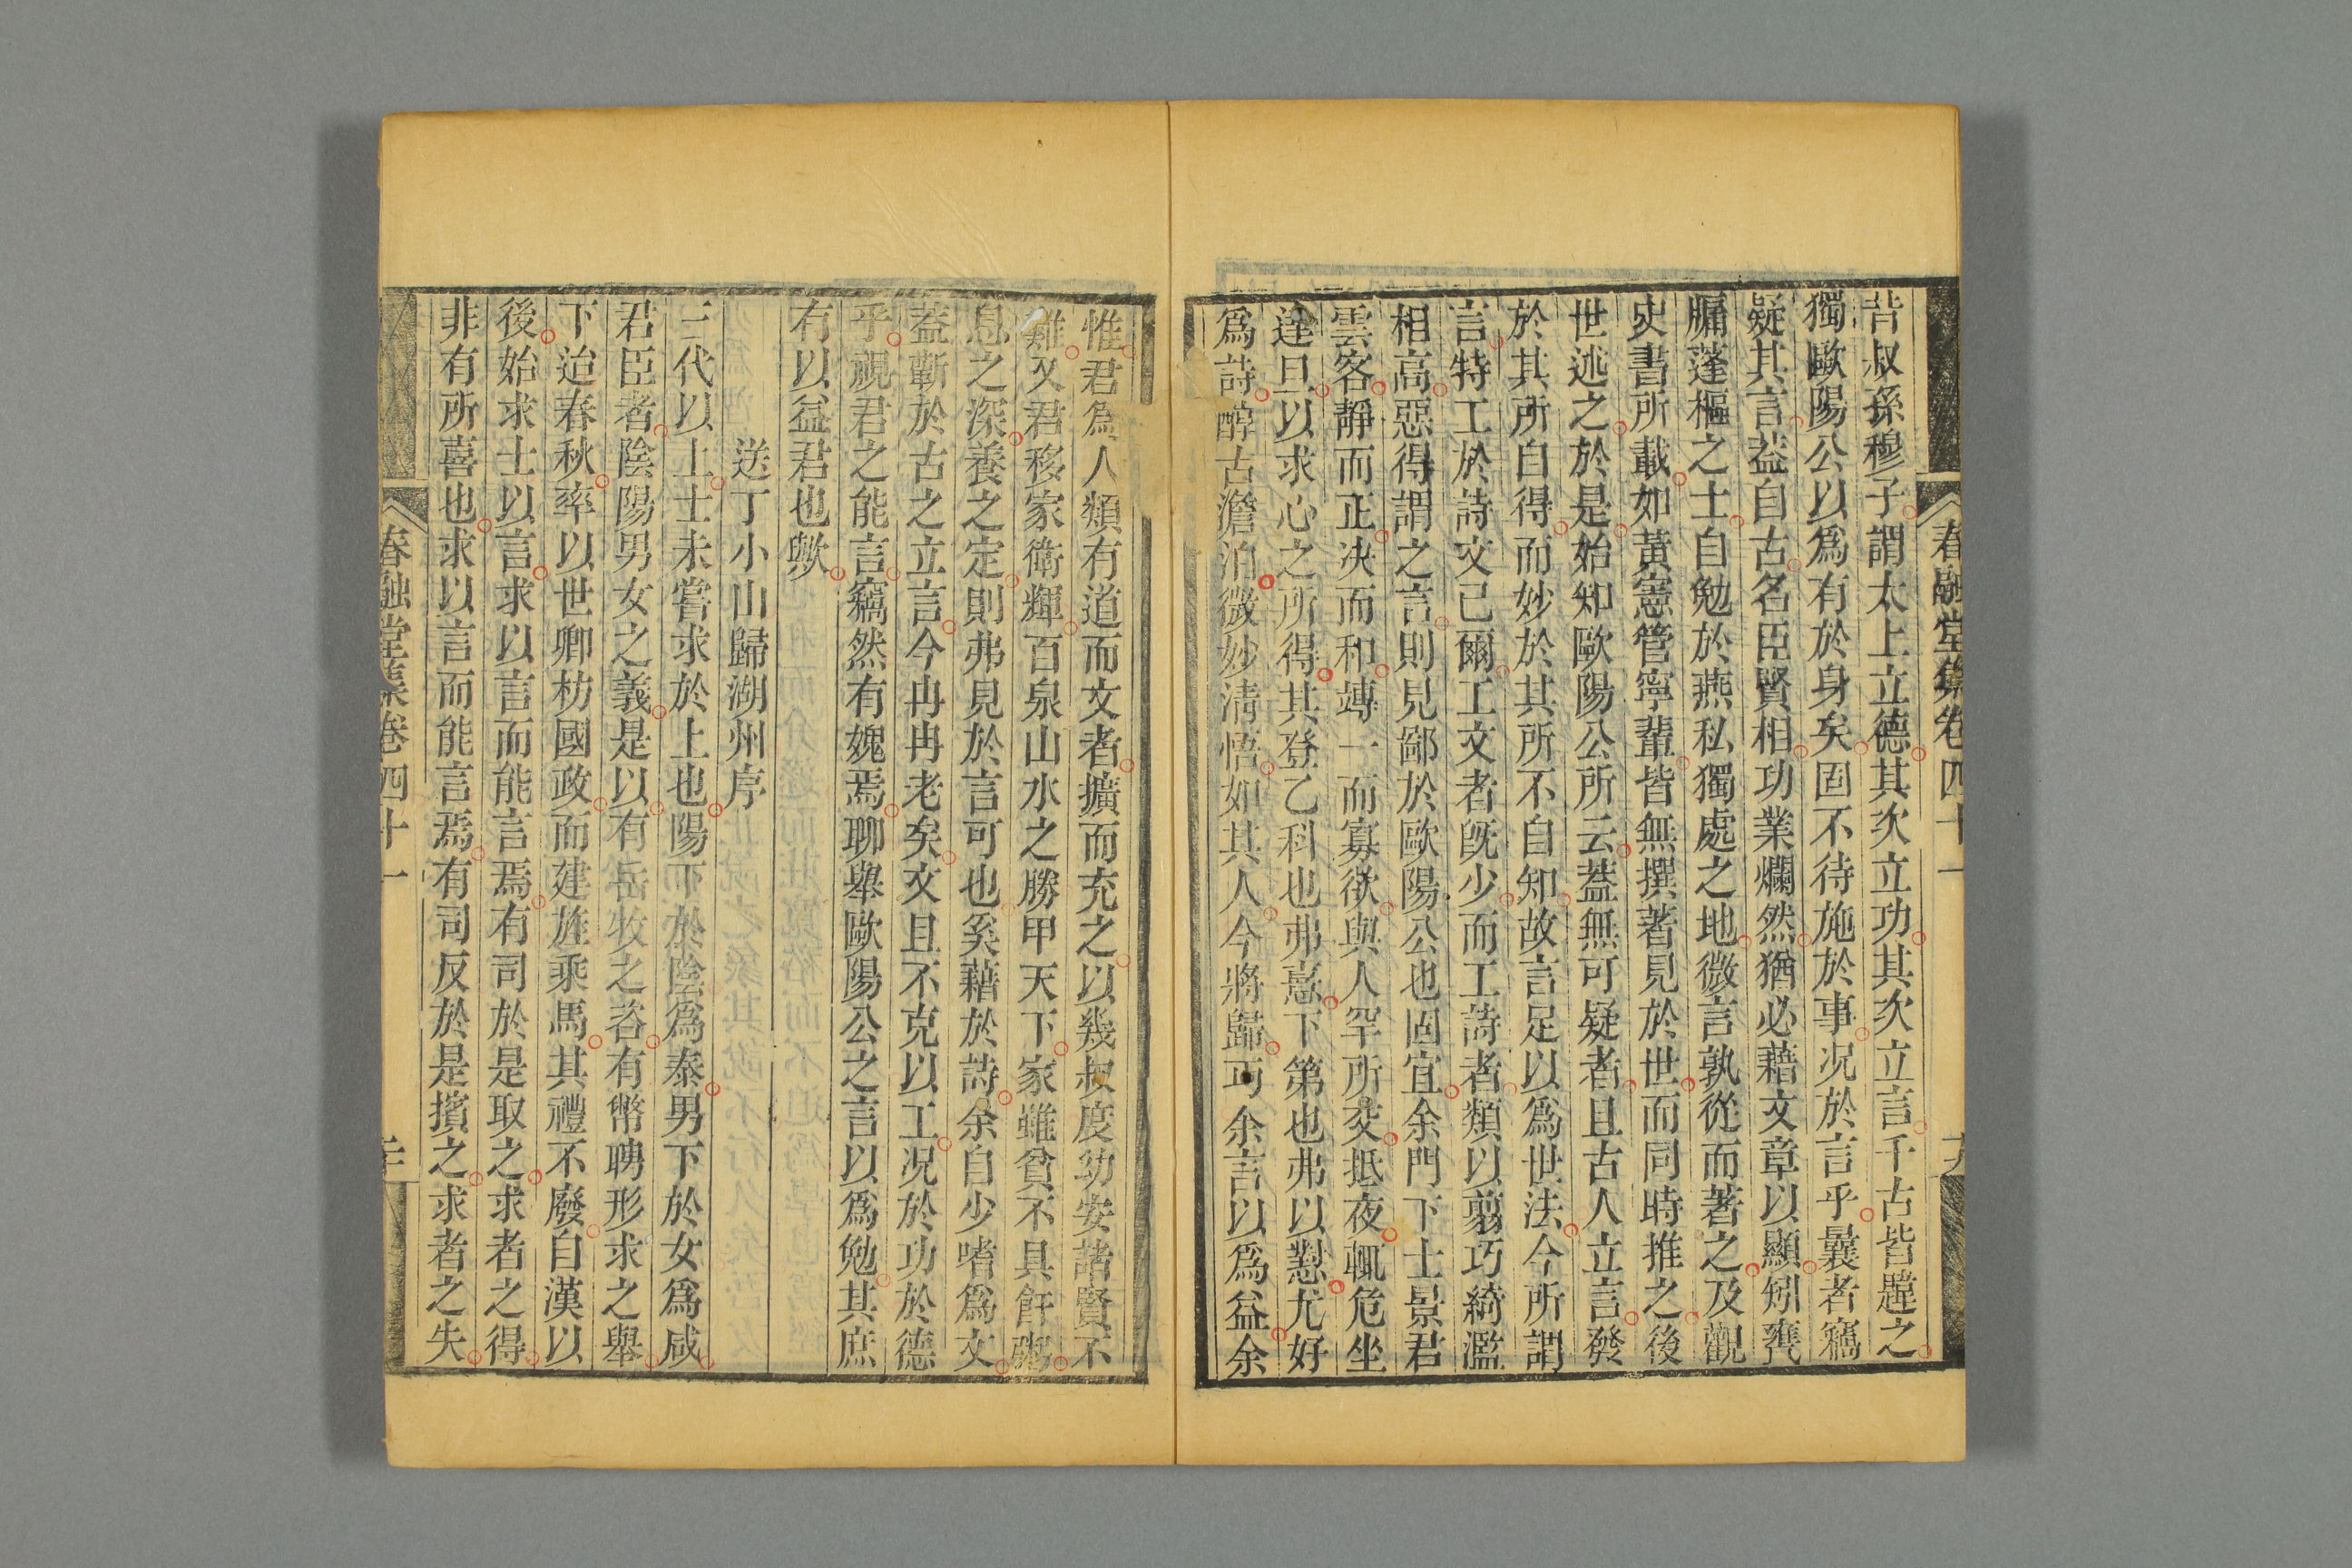 春融堂集卷四十一
昔叔孫穆子謂太上立德其次立功其次立言千古皆韙之
獨歐陽公以爲有於身矣固不待施於事况於言乎曩者竊
疑其言葢自古名臣賢相功業爛然猶必藉文章以顯矧甕
牖蓬樞之士自勉於燕私獨處之地微言孰從而著之及觀
史書所載如黃憲管寧輩皆無撰著見於世而同時推之後
世述之於是始知歐陽公所云葢無可疑者且古人立言發
於其所自得而妙於其所不自知故言足以爲世法今所謂
言特工於詩文已爾工文者旣少而工詩者類以翦巧綺濫
相高惡得謂之言則見鄙於歐陽公也固宜余門下士景君
雲客靜而正决而和竱一而寡欲與人罕所交抵夜輒危坐
達旦以求心之所得其登乙科也弗憙下第也弗以懟尤好
爲詩醇古澹泊微妙淸悟如其人今將歸丐余言以爲益余
惟君爲人類有道而文者擴而充之以幾叔度幼安諸賢不
難又君移家衛輝百泉山水之勝甲天下家雖貧不具飦粥
息之深養之定則弗見於言可也奚藉於詩余自少嗜爲文
葢蘄於古之立言今冉冉老矣文且不克以工况於功於德
乎視君之能言竊然有媿焉聊舉歐陽公之言以爲勉其庶
有以益君也歟
送丁小山歸湖州序
三代以上士未嘗求於上也陽下於陰爲泰男下於女爲咸
君臣者陰陽男女之義是以有岳牧之咨有幣聘形求之舉
下迨春秋率以世卿枋國政而建旌乘馬其禮不廢自漢以
後始求士以言求以言而能言焉有司於是取之求者之得
非有所喜也求以言而能言焉有司反於是擯之求者之失
春融堂集卷四十一